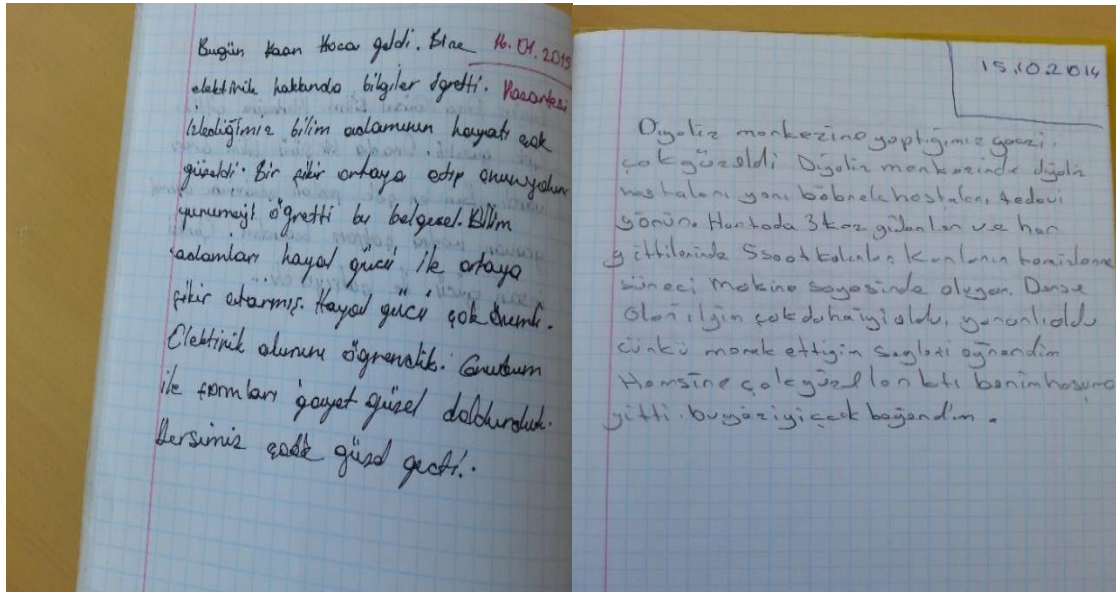 Bugün Kaan Hoca geldi. Bize 16.01.2015
elektirik hakkında bilgiler öğretti. Pazartesi
İzlediğimiz bilim adamının hayatı çok
güzeldi. Bir fikir ortaya atıp onun yolun
yürümeyi öğretti bu belgesel. Bilim
adamları hayal gücü ile ortaya
fikir atarmış. Hayal gücü çok önemli.
Elektirik akımını öğrendik. Grubum
ile formları gayet güzel doldurduk.
Dersimiz çok güzel geçti.
15.10.2014
Diyaliz merkezine yaptığımız gezi
çok güzeldi Diyaliz merkezinde diyaliz
hastaları yani böbrek hastaları tedavi
görür. Haftada 3 kez giderler ve her
gittilerinde 5 saat kalırlar Kanların temizlenme
süreci makine sayesinde oluyor. Derse
olan ilgim çok daha iyi oldu, yararlı oldu
çünkü merak ettiğim şeyleri öğrendim
Hemşire çok güzel anlattı benim hoşuma
gitti. bu geziyi çok beğendim.